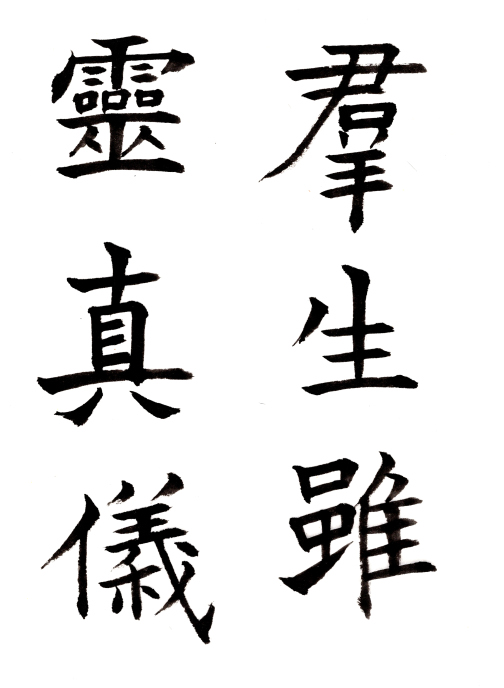 羣生雖
靈真儀